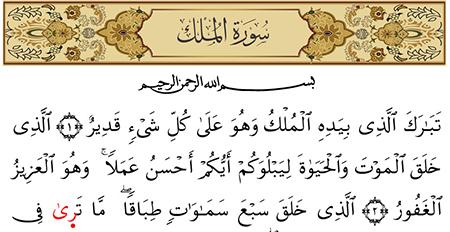 سُورَةُ المُلك
بسم الله الرحمن الرحيم
تَبَٰرَكَ ٱلَّذِي بِيَدِهِ ٱلۡمُلۡكُ وَهُوَ عَلَىٰ كُلِّ شَيۡءٖ قَدِيرٌ ﴿١﴾ ٱلَّذِي
خَلَقَ ٱلۡمَوۡتَ وَٱلۡحَيَوٰةَ لِيَبۡلُوَكُمۡ أَيُّكُمۡ أَحۡسَنُ عَمَلٗاۚ وَهُوَ ٱلۡعَزِيزُ
ٱلۡغَفُورُ ﴿٢﴾ ٱلَّذِي خَلَقَ سَبۡعَ سَمَٰوَٰتٖ طِبَاقٗاۖ مَّا تَرَىٰ فِي